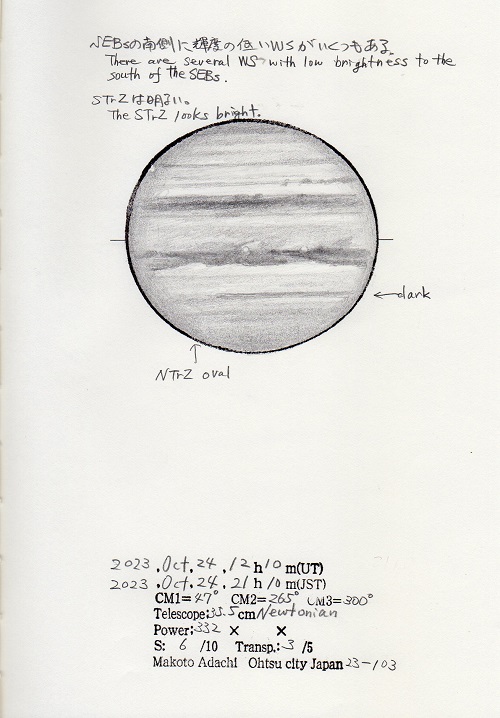 SEBsの南側に輝度の低いWSがいくつもある。
There are several WS with low brightness to the
south of the SEBs.
STrZは明るい。
The STrZ looks bright.
← dark
↑
NTrZ oval
2023.Oct.24.12h10m(UT)
2023.Oct.24.21h10m(JST)
CM1=47° CM2=265° CM3=300°
Telescope:35.5cm Newtonian
Power:332× ×
S: 6 /10 Transp.:3 /5
Makoto Adachi Ohtsu city Japan 23-103